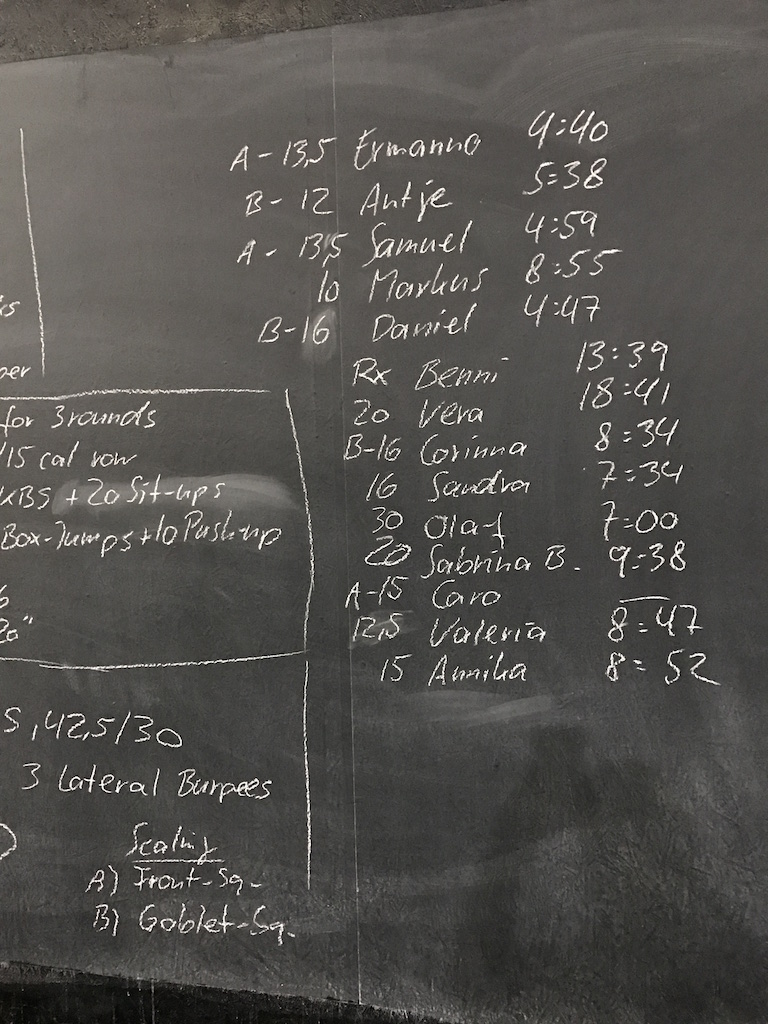 for 3 rounds
/15 cal row
KBS + 20 Sit-ups
Box-Jumps + 10 Push-up
20"
S, 42,5/30
3 Lateral Burpees
Scaling
A) Front-Sq.
B) Goblet-Sq.
A - 13,5 Ermanno 4:40
B - 12 Antje 5:38
A - 13,5 Samuel 4:59
10 Markus 8:55
B-16 Daniel 4:47
Rx Benni 13:39
20 Vera 18:41
B-16 Corinna 8:34
16 Sandra 7:34
30 Olaf 7:00
20 Sabrina B. 9:38
A-15 Caro —
12,5 Valeria 8:47
15 Annika 8:52